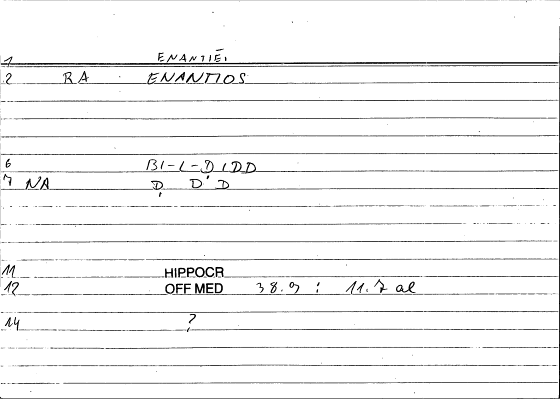 1 ENANTIÉ:
2 RA ENANTIOS
6 BI-L-D IDD
7 NA Ḍ D'D
11 HIPPOCR
12 OFF MED 38.9 : 11.7 al
14 ?